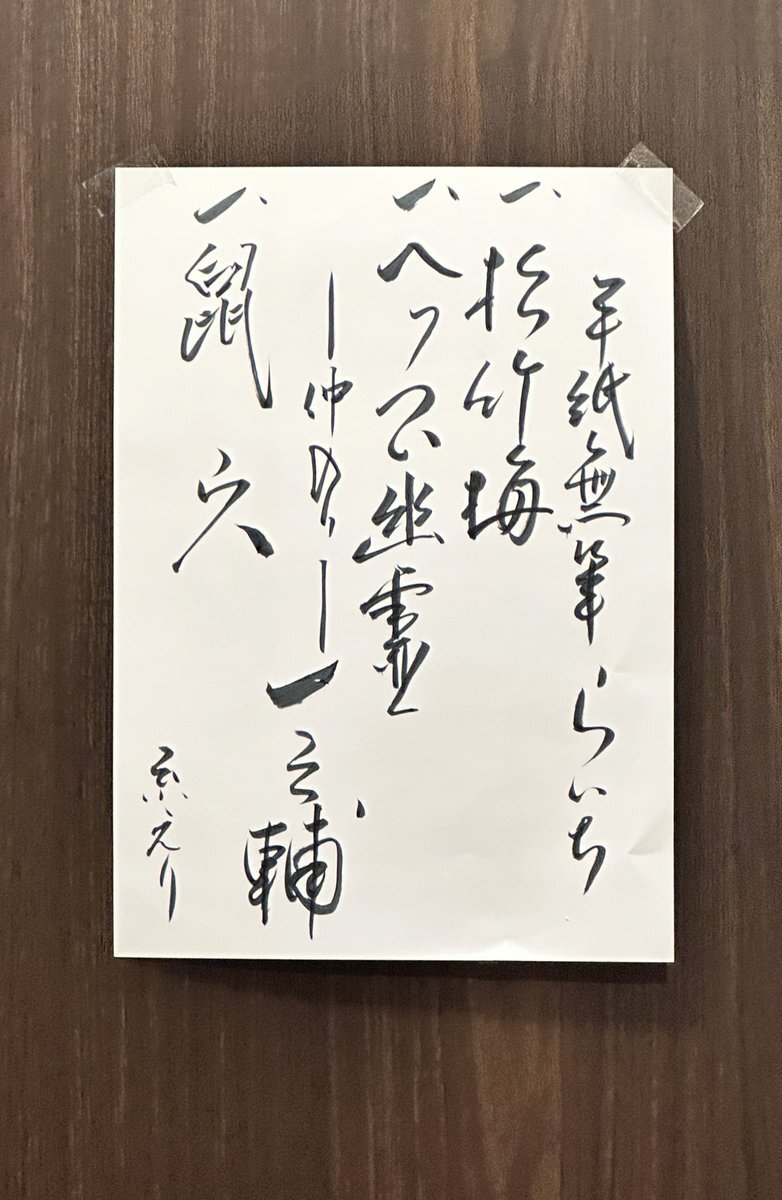 手紙無筆 らいち
一、松竹梅
一、へっつい幽霊
―仲入り―
一、鼠穴
一之輔